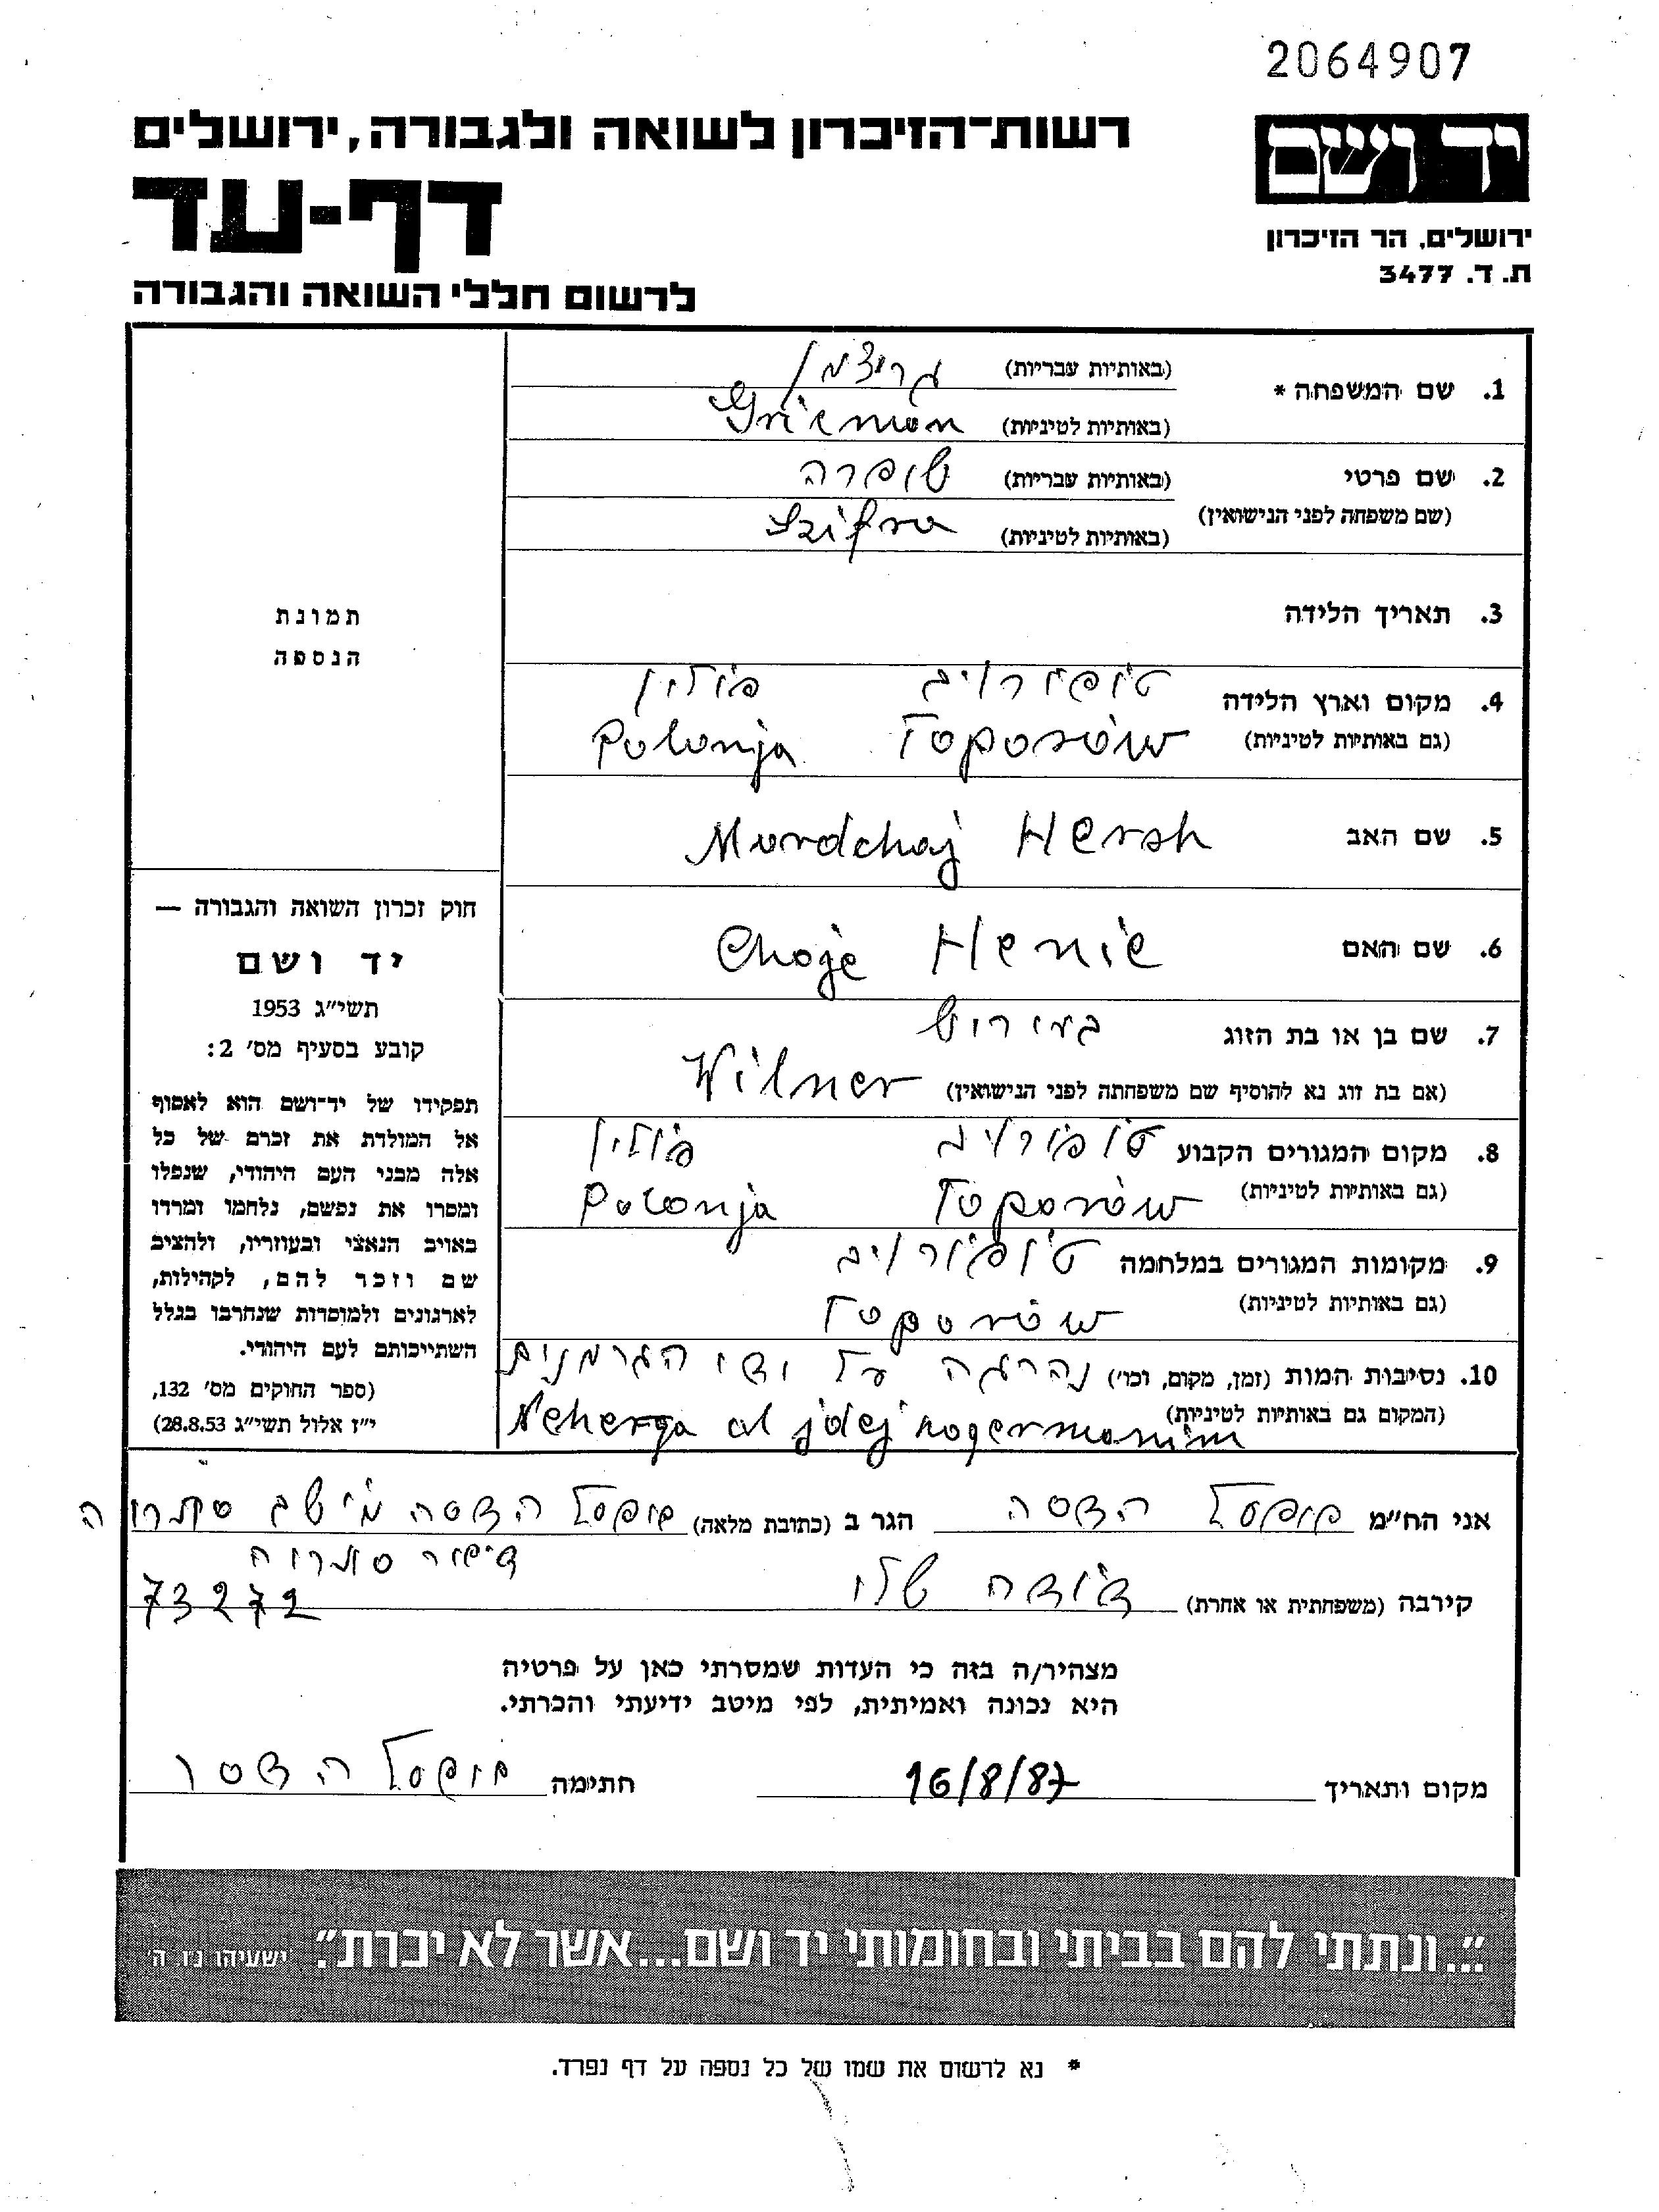 2064907
יד ושם
ירושלים, הר הזיכרון
ת. ד. 3477
רשות־הזיכרון לשואה ולגבורה, ירושלים
דף-עד
לרשום חללי השואה והגבורה
1. שם המשפחה * (באותיות עבריות) גריצמן
(באותיות לטיניות) Gricman
2. שם פרטי (באותיות עבריות) שופרה
(שם משפחה לפני הנישואין) (באותיות לטיניות) Szifra
3. תאריך הלידה
4. מקום וארץ הלידה טופורויב פולין
(גם באותיות לטיניות) Toporów Polonja
5. שם האב Mordchaj Hersh
6. שם האם Choje Henie
7. שם בן או בת הזוג
(אם בת זוג נא להוסיף שם משפחתה לפני הנישואין) Wilner
8. מקום המגורים הקבוע טופורויב פולין
(גם באותיות לטיניות) Toporów Polonja
9. מקומות המגורים במלחמה טופורויב
(גם באותיות לטיניות) Toporów
10. נסיבות המות (זמן, מקום, וכו') נהרגה על ידי הגרמנים
(המקום גם באותיות לטיניות) Neherga al jdej hagermanim
תמונת
הנספה
חוק זכרון השואה והגבורה —
יד ושם
תשי״ג 1953
קובע בסעיף מס׳ 2:
תפקידו של יד־ושם הוא לאסוף
אל המולדת את זכרם של כל
אלה מבני העם היהודי, שנפלו
ומסרו את נפשם, נלחמו ומרדו
באויב הנאצי ובעוזריו, ולהציב
שם וזכר להם, לקהילות,
לארגונים ולמוסדות שנחרבו בגלל
השתייכותם לעם היהודי.
(ספר החוקים מס׳ 132,
י״ז אלול תשי״ג 28.8.53)
אני הח״מ פופסל הדסה הגר ב (כתובת מלאה) פופסל הדסה מישב
קירבה (משפחתית או אחרת) דודה שלי 73272
מצהיר/ה בזה כי העדות שמסרתי כאן על פרטיה
היא נכונה ואמיתית, לפי מיטב ידיעתי והכרתי.
מקום ותאריך 16/8/87 חתימה פופסל
״...ונתתי להם בביתי ובחומותי יד ושם...אשר לא יכרת״. ישעיהו נ״ו, ה׳
* נא לרשום את שמו של כל נספה על דף נפרד.